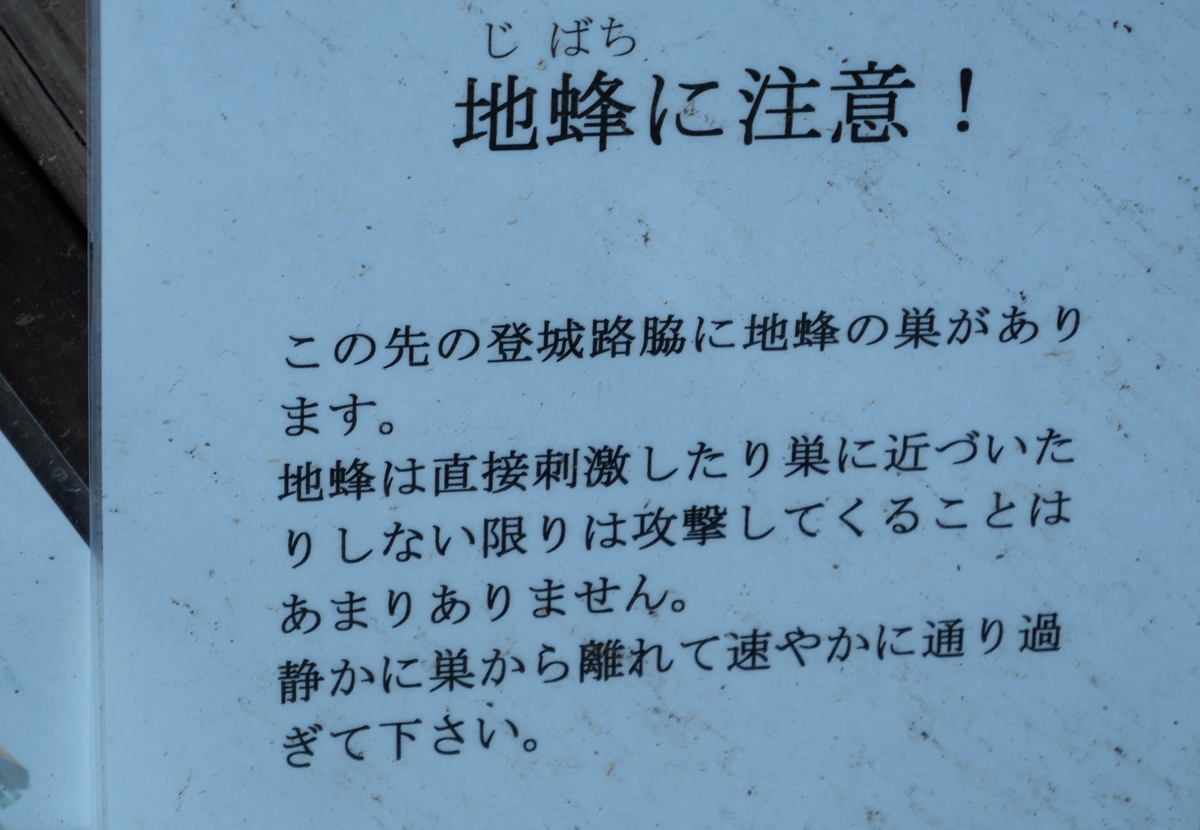 じ ばち
地蜂に注意！
この先の登城路脇に地蜂の巣があり
ます。
地蜂は直接刺激したり巣に近づいた
りしない限りは攻撃してくることは
あまりありません。
静かに巣から離れて速やかに通り過
ぎて下さい。